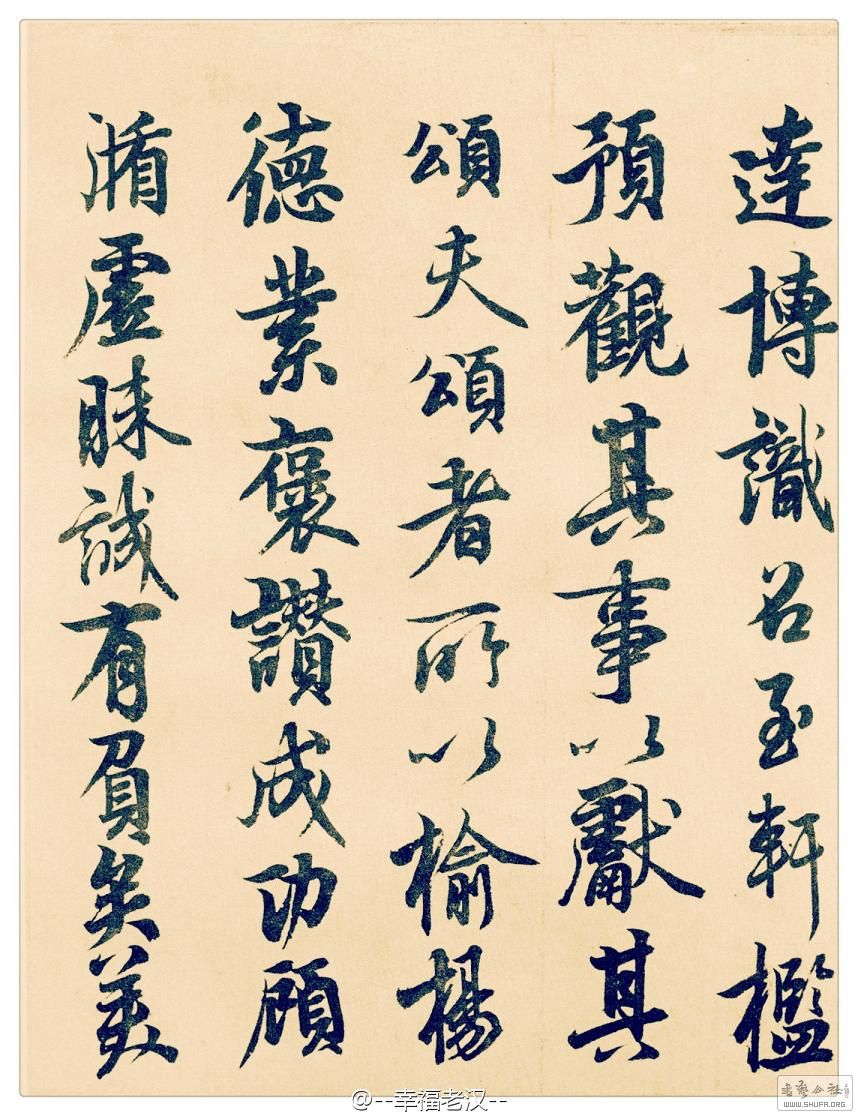 達博識召至軒檻
預觀其事以獻其
頌夫頌者所以榆楊
德業褒讚成功顧
循虛昧誠有負矣美
@--幸福老汉--
书艺公社
WWW.SHUFA.ORG